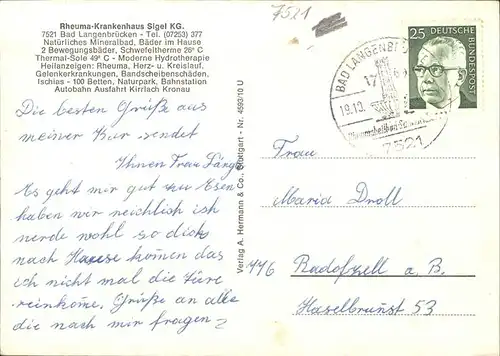 7521
Rheuma-Krankenhaus Sigel KG.
7521 Bad Langenbrücken - Tel. (07253) 377
Natürliches Mineralbad, Bäder im Hause
2 Bewegungsbäder, Schwefeltherme 26° C
Thermal-Sole 49° C - Moderne Hydrotherapie
Heilanzeigen: Rheuma, Herz- u. Kreislauf,
Gelenkerkrankungen, Bandscheibenschäden,
Ischias - 100 Betten, Naturpark, Bahnstation
Autobahn Ausfahrt Kirrlach Kronau
Die besten Grüße aus
meiner Kur sendet
Ihnen Frau Länge
Es geht mir gut zu Esen
haben wir reichlich ich
werde wohl so dick
nach Hause kommen das
ich nicht mal die Türe
reinkome. Grüße an alle
die nach mir fragen
Verlag A. Hermann & Co., Stuttgart - Nr. 4593/10 U
BAD LANGENBR
17
19.10.
7521
25 DEUTSCHE BUNDESPOST
Frau
Maria Droll
Radolfzell a. B.
Haselbrunst 53